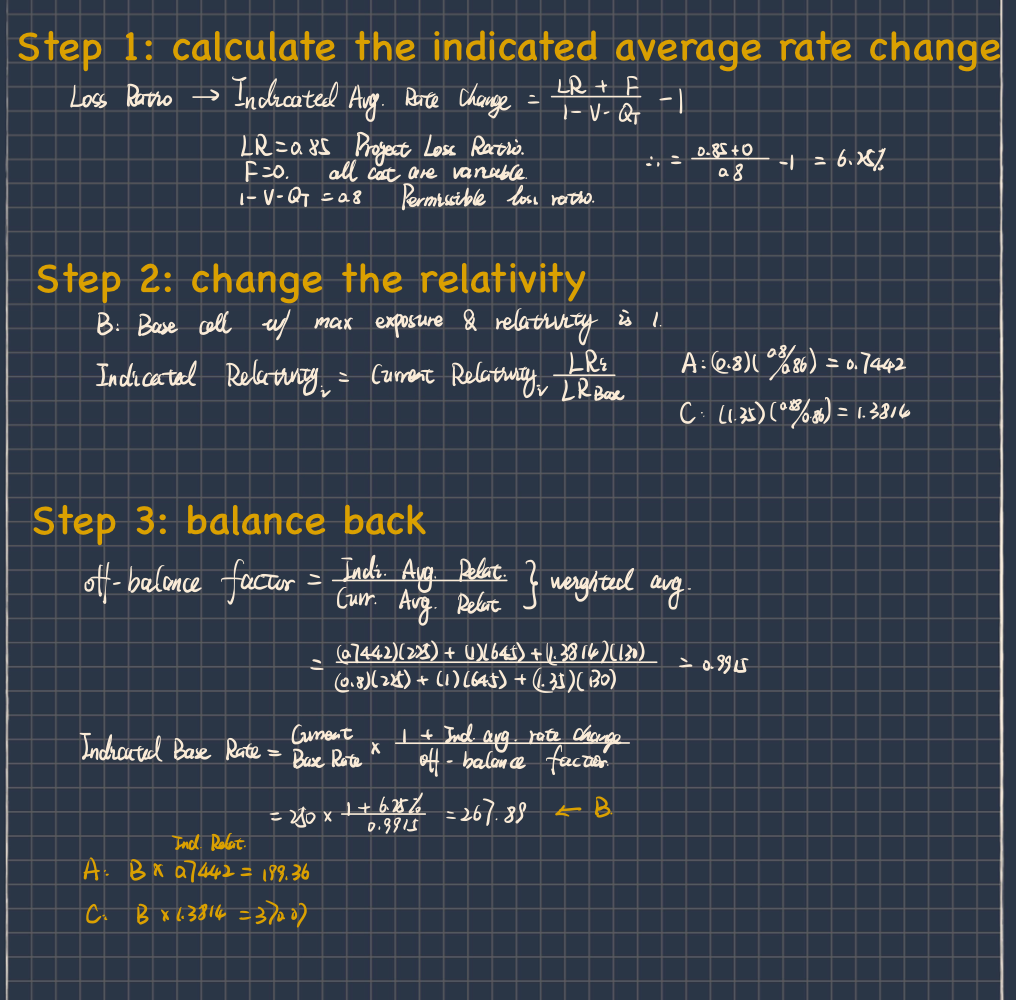 Step 1: calculate the indicated average rate change
Loss Ratio → Indicated Avg. Rate Change = (LR + F)/(1 - V - Q_T) - 1
LR = 0.85 Project Loss Ratio.
F = 0. all cost are variable.
1 - V - Q_T = 0.8 Permissible loss ratio.
∴ = (0.85+0)/0.8 - 1 = 6.25%
Step 2: change the relativity
B: Base cell w/ max exposure & relativity is 1.
Indicated Relativity_i = Current Relativity_i LR_i/LR_Base
A: (0.8)(0.8/0.86) = 0.7442
C: (1.35)(0.88/0.86) = 1.3814
Step 3: balance back
off-balance factor = Indi. Avg. Relat. / Curr. Avg. Relat } weighted avg.
= ((0.7442)(225) + (1)(645) + (1.3814)(130)) / ((0.8)(225) + (1)(645) + (1.35)(130)) = 0.9915
Indicated Base Rate = Current Base Rate × (1 + Ind. avg. rate change)/(off-balance factor)
= 250 × (1 + 6.25%)/0.9915 = 267.89 ← B
Ind. Relat.
A: B × 0.7442 = 199.36
C: B × 1.3814 = 370.07